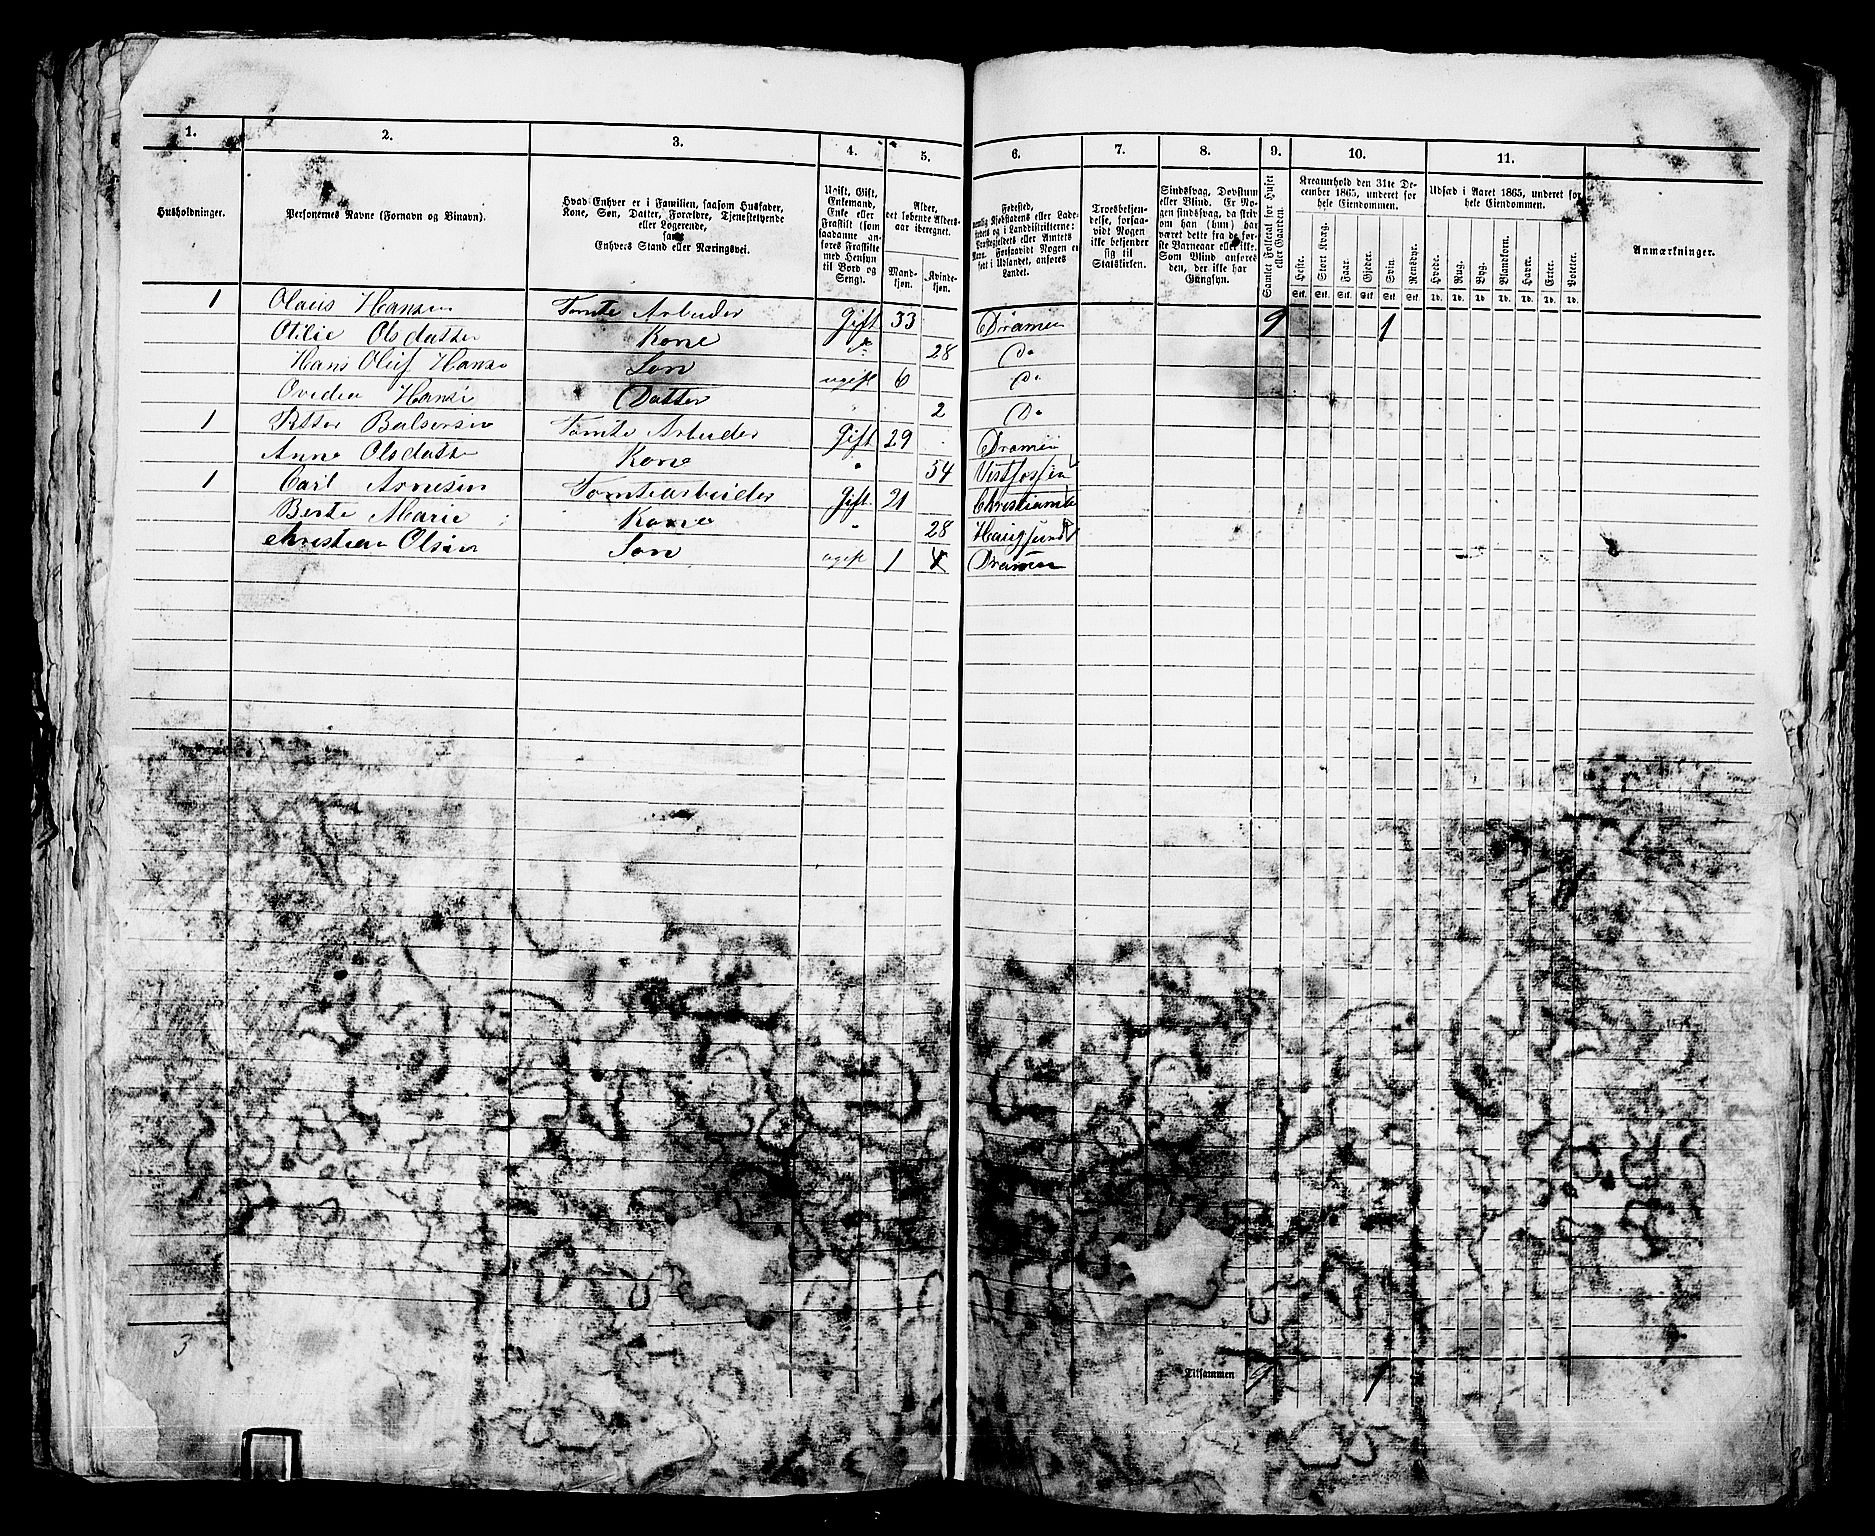 1. 2. 3. 4. 5. 6. 7. 8. 9. 10. 11.
Husholdninger.
Personernes Navne (Fornavn og Binavn).
Hvad Enhver er i Familien, saasom Husfader,
Kone, Søn, Datter, Forældre, Tjenestetyende
eller Logerende,
samt
Enhvers Stand eller Næringsvei.
Ugift, Gift,
Enkemand,
Enke eller
Fraskilt (som
saadanne an-
føres Fraskilte
med Hensyn
til Bord og
Seng).
Alder,
det løbende Alders-
aar iberegnet.
Mand-
kjøn.
Kvinde-
kjøn.
Fødested,
nemlig Kjøbstadens eller Lade-
stedets og i Landdistrikterne:
Præstegjeldets eller Amtets
Navn. Forsaavidt Nogen er
født i Udlandet, anføres
Landet.
Troesbekjen-
delse, forsaa-
vidt Nogen
ikke bekjender
sig til
Statskirken.
Sindssvag, Døvstum
eller Blind. Er No-
gen sindssvag, da skriv
om han (hun) har
været dette fra de før-
ste Barneaar eller ikke.
Som Blind anføres
den, der ikke har
Gangsyn.
Samlet Folketal for Huset
eller Gaarden.
Kreaturhold den 31te De-
cember 1865, underet for
hele Eiendommen.
Heste. Stort Kvæg. Faar. Gjeder. Svin. Rensdyr.
Stk. Stk. Stk. Stk. Stk. Stk.
Udsæd i Aaret 1865, underet for
hele Eiendommen.
Hvede. Rug. Byg. Blandkorn. Havre. Erter. Poteter.
Td. Td. Td. Td. Td. Td. Td.
Anmærkninger.
1 Olaus Hansen Tomte Arbeider Gift 33 Dramen 9 1
Otilie Olsdatter Kone do 28 Do
Hans Oluf Hansen Søn ugift 6 Do
Ovidia Hansen Datter 2 Do
1 Petter Balsersen Tomte Arbeider Gift 29 Dramen
Anne Olsdatter Kone " 54 Vestfossen
1 Carl Arnesen Tomtearbeider Gift 21 Christiania
Berte Marie Kone " 28 Haugsund
Christian Olsen Søn ugift 1 Dramen
3
Tilsammen 9 1